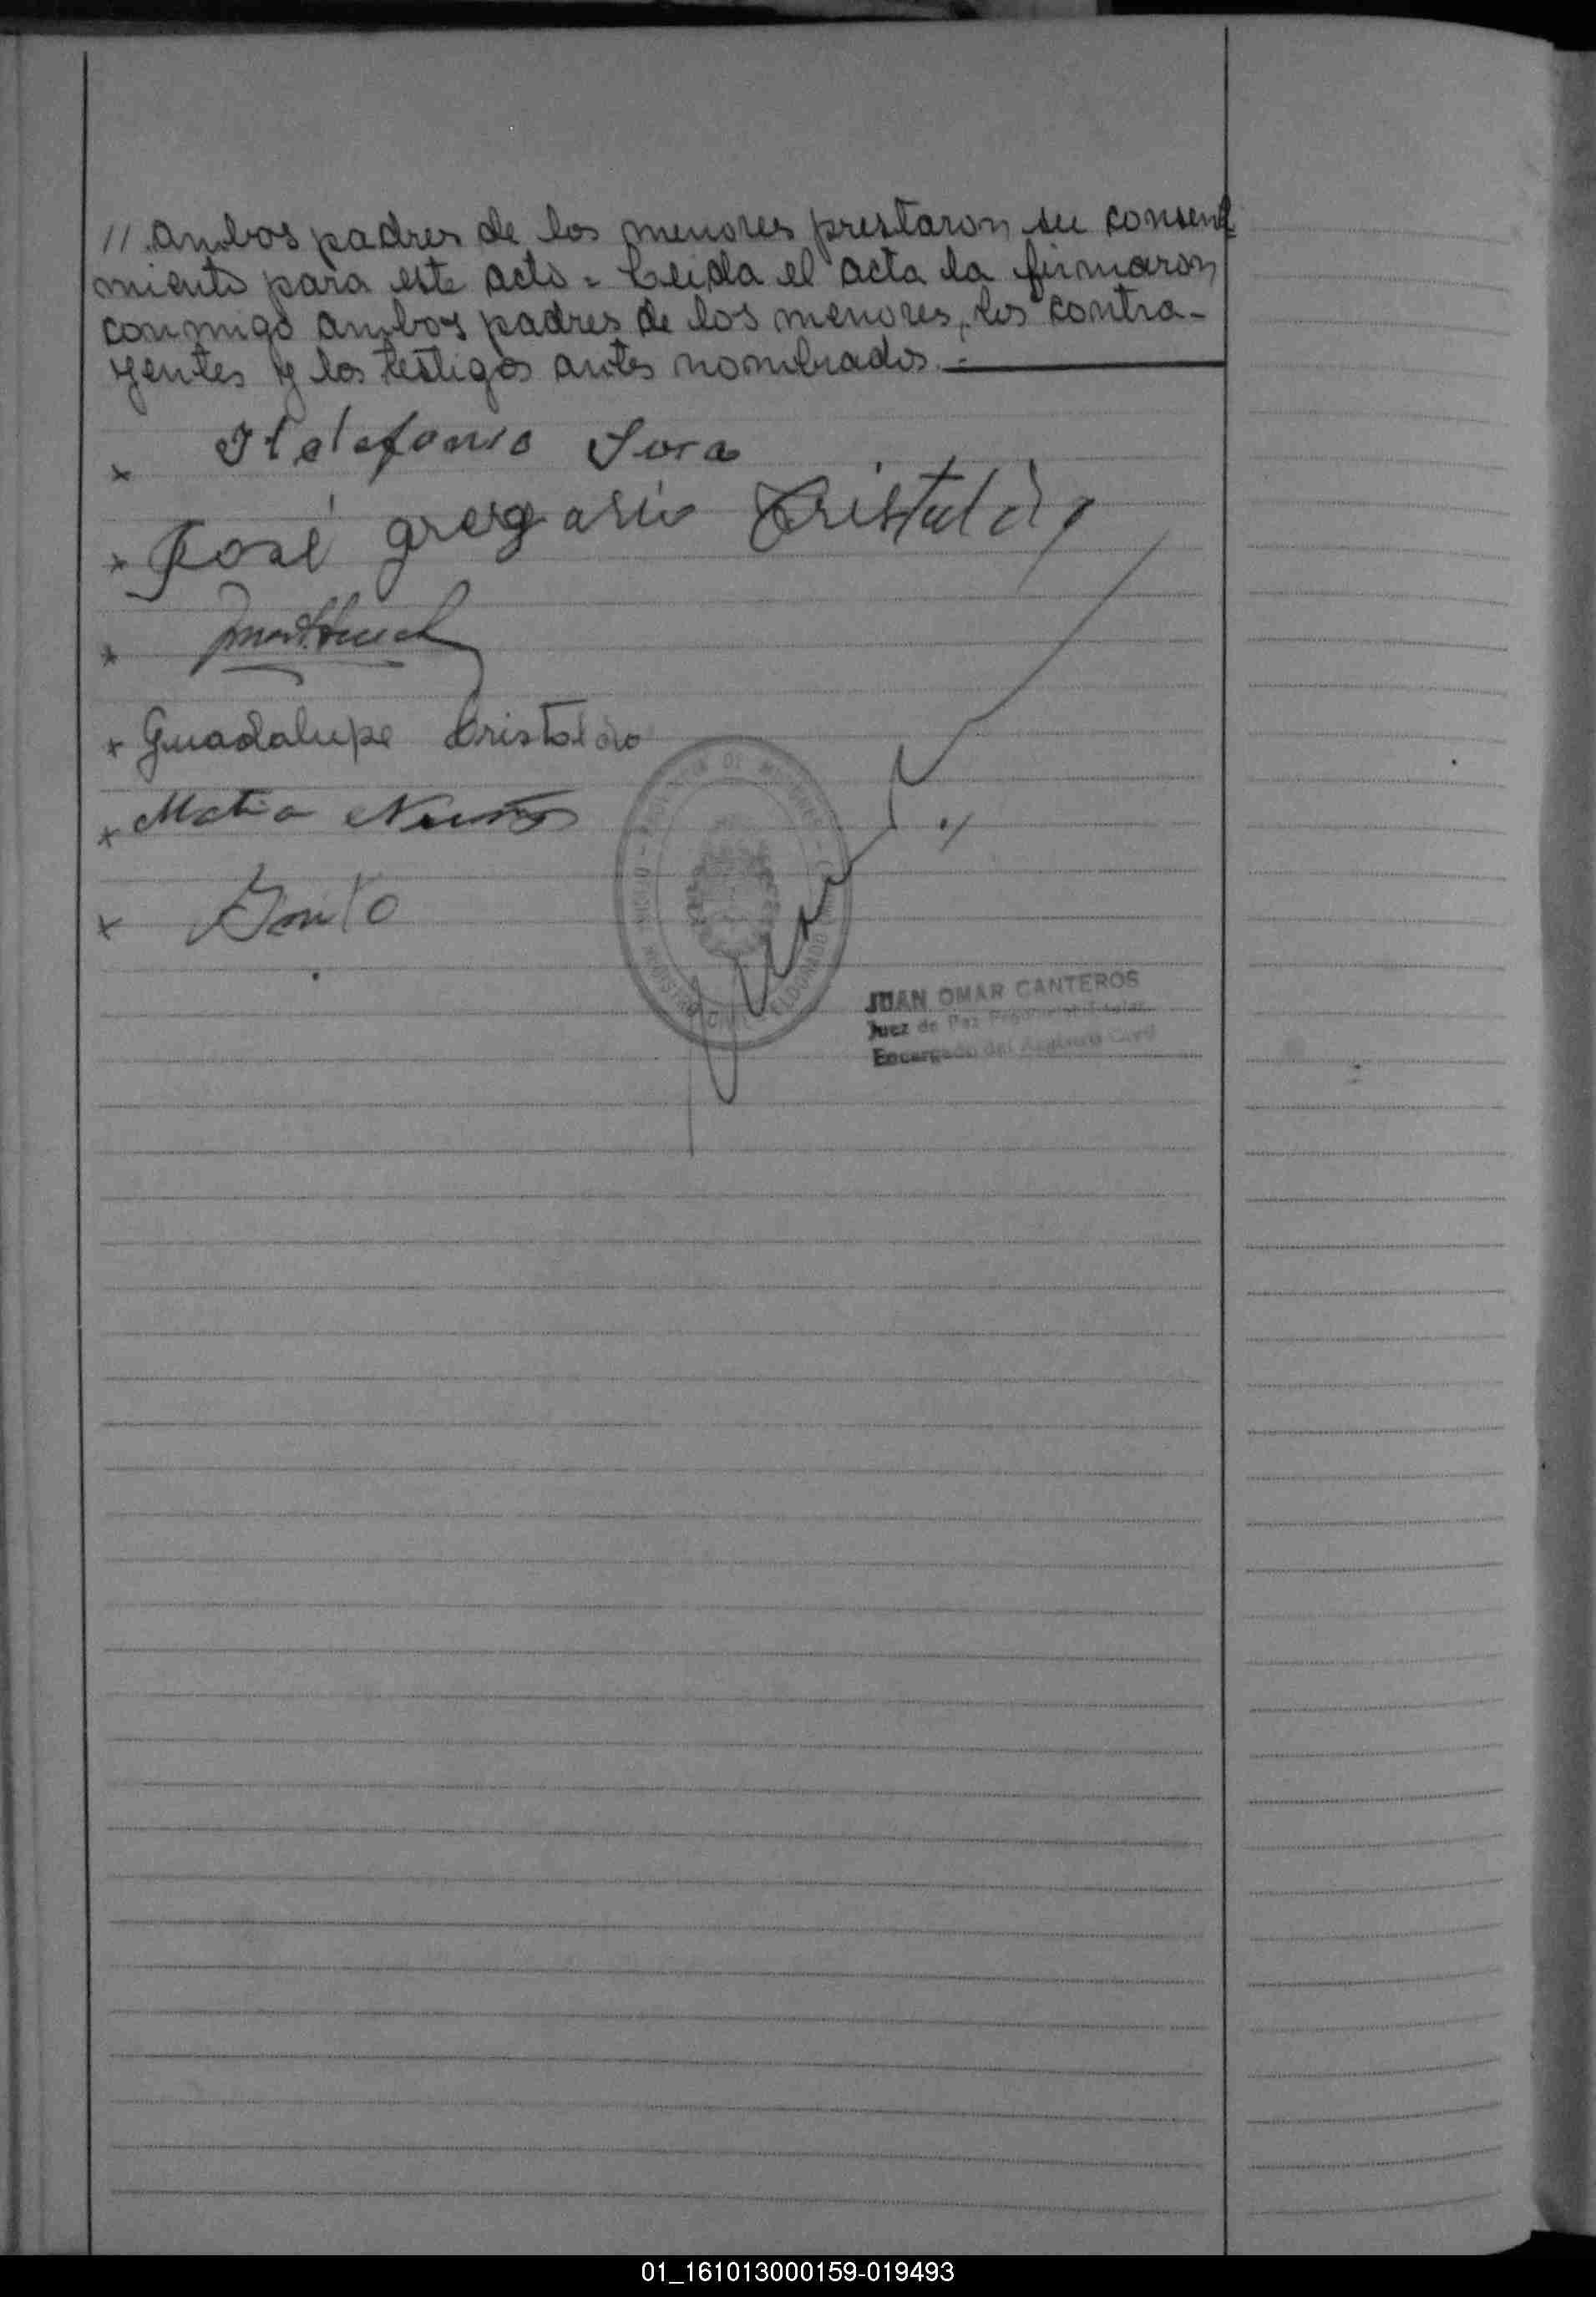 // ambos padres de los menores prestaron su consenti
miento para este acto = Leida el acta la firmaron
conmigo ambos padres de los menores, los contra-
yentes y los testigos antes nombrados.=
x Ildefonso Sosa
x José gregorio Cristaldo
x
x Guadalupe Cristaldo
x Matia
x
PROVINCIA DE MISIONES - ELDORADO - REGISTRO CIVIL
JUAN OMAR CANTEROS
Juez de Paz
Encargado del Registro Civil
01_161013000159-019493